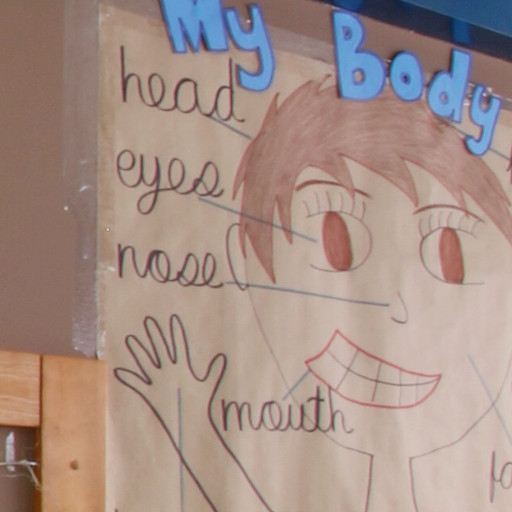 My Body
head
eyes
nose
mouth